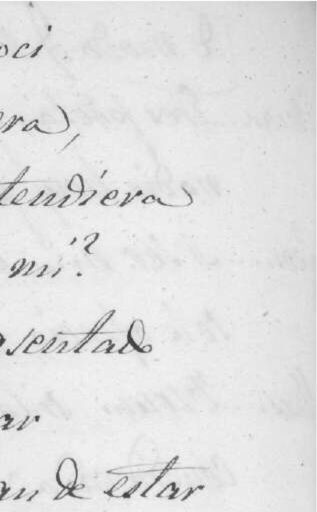 oci
era,
tendiera
mi?
sentado
ar
an de estar